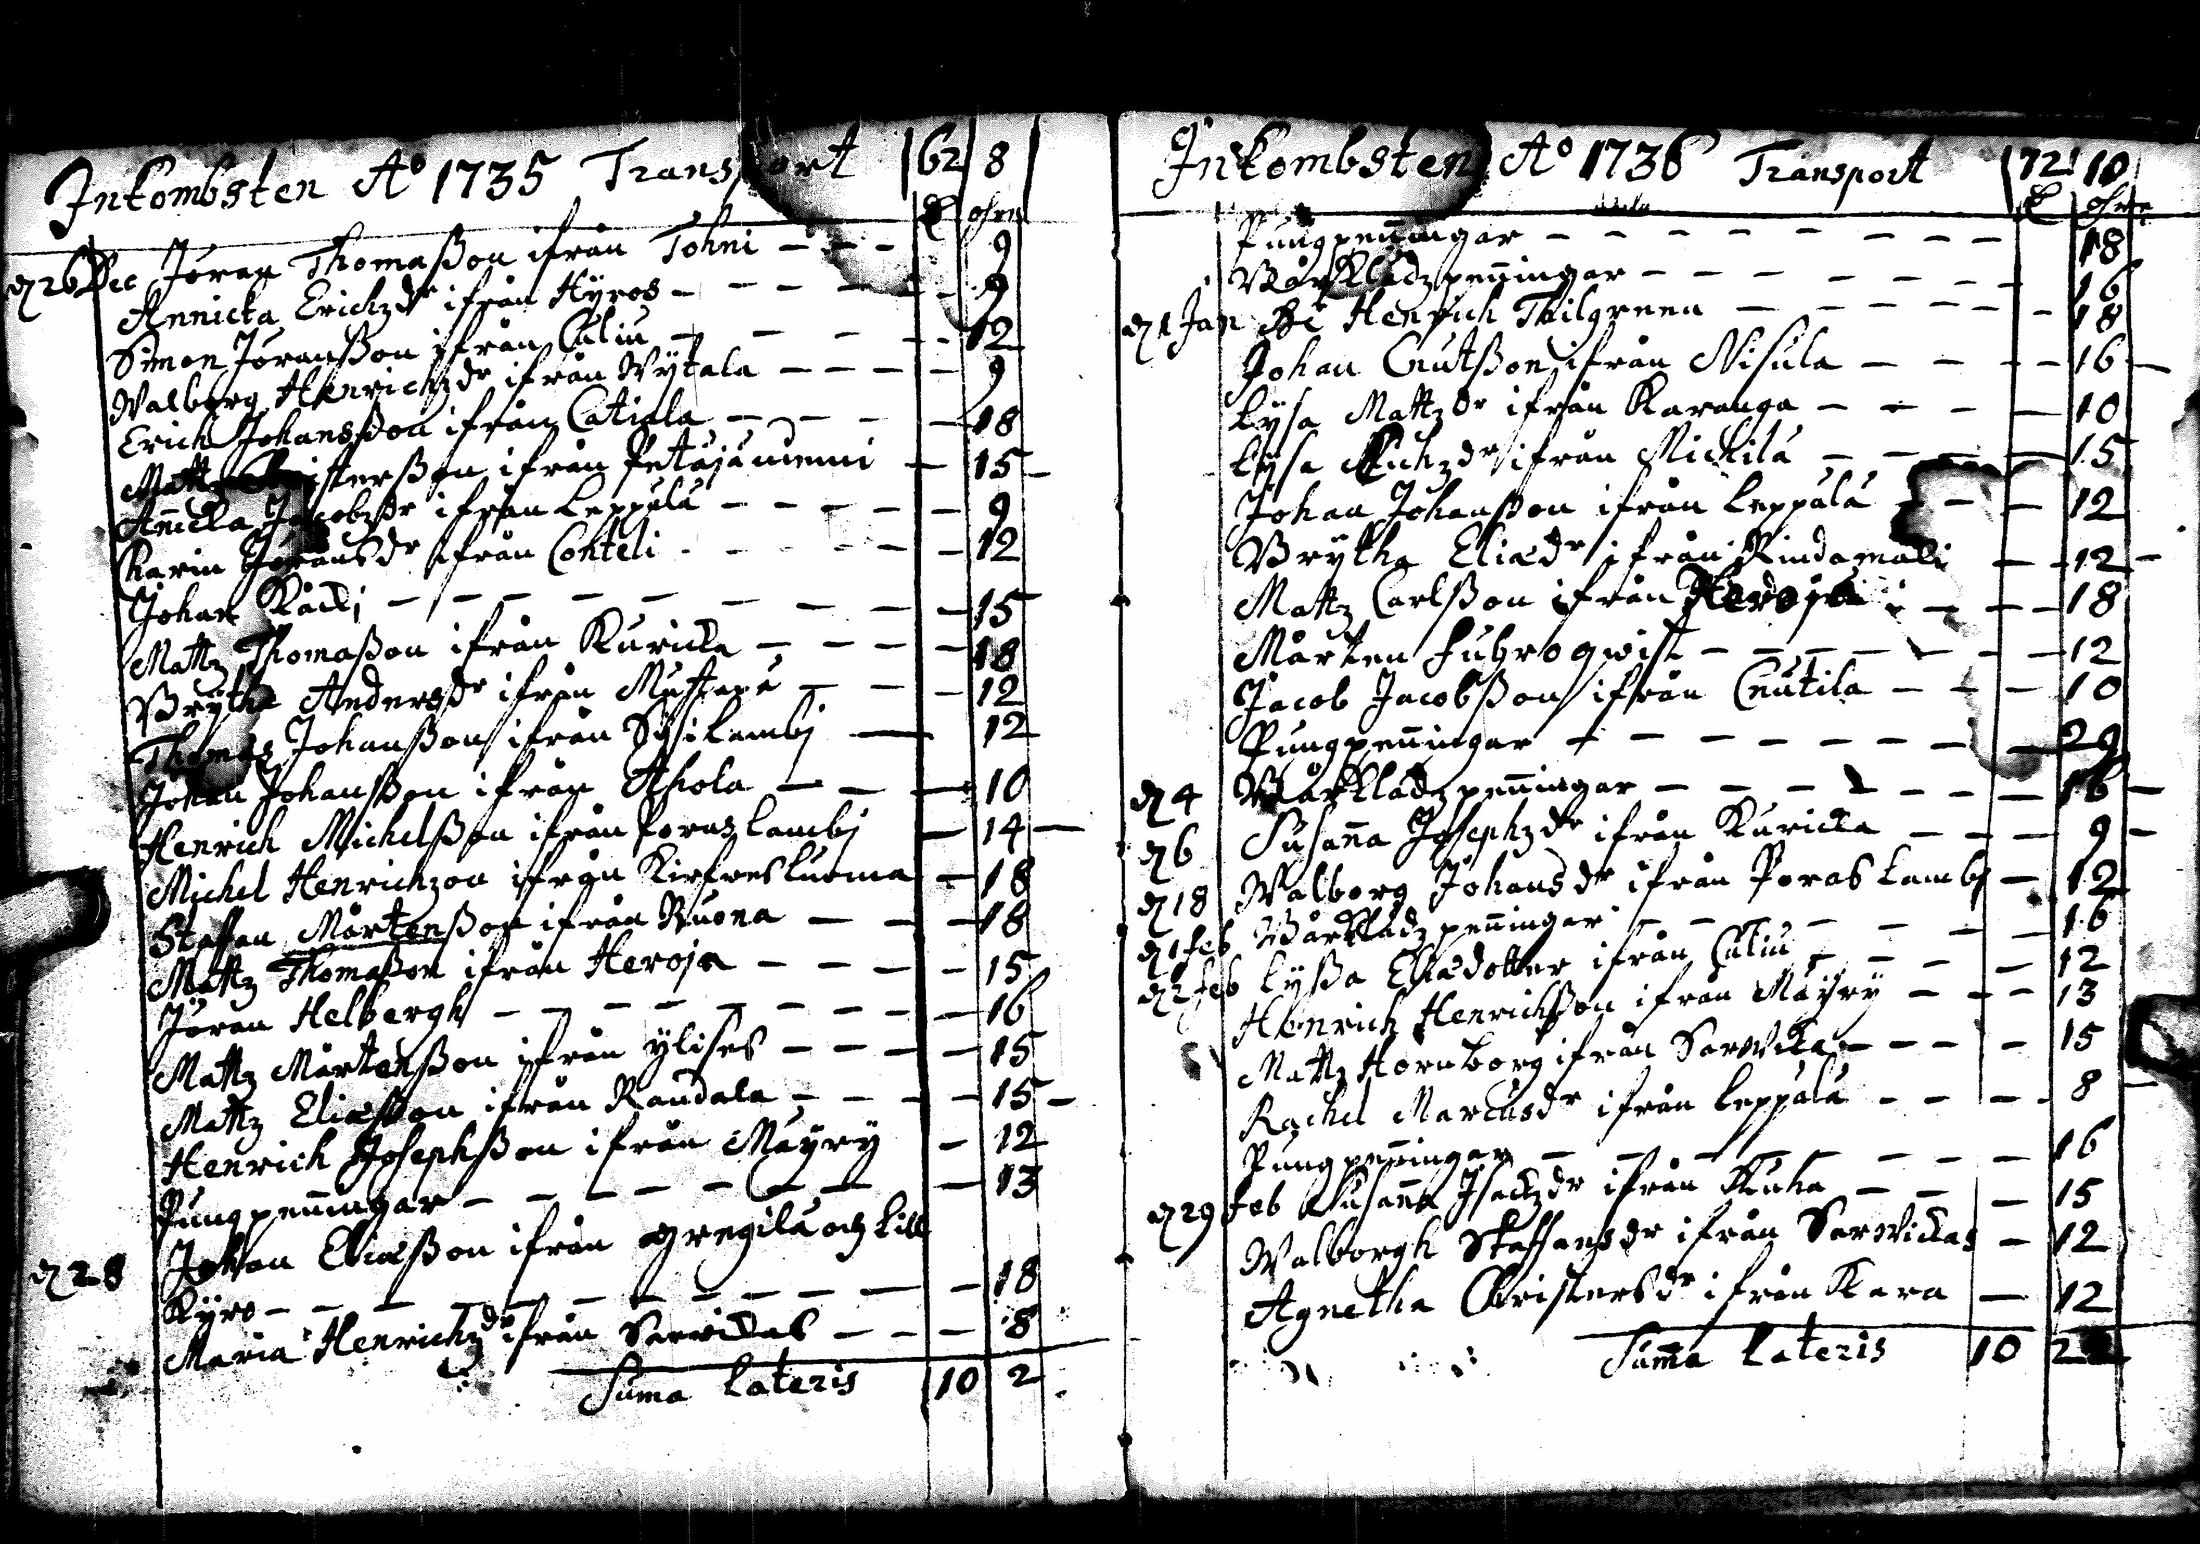 Inkombsten Aº 1735 Transport 62 8
ohre
d 26 Dec Jöran Thomaßon ifrån Tohni - - - 9
Annicka Erichzdr ifrån Hÿros - - - - - 9
Simon Jöranßon ifrån Culiu - - - - - 12
Walborg Henrichzdr ifrån Wÿtala - - - - 9
Erich Johansßon ifrån Catiala - - - - 18
Mattz Christerßon ifrån Petäjäniemi - 15 -
Anicka Jacobzdr ifrån Leppälä - - - - - 9
Karin Jöransdr ifrån Conteli - - - - - 12
Johan Käcki - - - - - - - - - 15
Mattz Thomaßon ifrån Kuricka - - - - 18
Brÿtha Andersdr ifrån Mustapä - - - 12
Thomas Johanßon ifrån Sysilambj - 12
Johan Johanßon ifrån Ahola - - - 10
Henrich Michelßon ifrån Poraslambj - 14 -
Michel Henrichzon ifrån Kirfvesluoma - 18
Staffan Mårtenßon ifrån Ruona - - - 18
Mattz Thomaßon ifrån Heroja - - - - 15
Jöran Helbergh - - - - - - - - 16
Mattz Mårtenßon ifrån ÿlises - - - - 15
Mattz Eliæßon ifrån Randala - - - - 15 -
Henrich Josephßon ifrån Mäÿrÿ - 12
Pungpenningar - - - - - - - - 13
d 28 Johan Eliæßon ifrån Gregilä och Lill
Kÿro - - - - - - - - - - 18
Maria Henrichzdr ifrån Sarvickas - - - 8
Suma Lateris 10 2
Inkombsten Aº 1736 Transport 72 10
ohre
Pungpenningar - - - - - - - - - 18
Bårklädz penningar - - - - - - - 16
d 1 Jan Hr Henrich Thilgrenn - - - - - - - 18
Johan Cnutßon ifrån Nisula - - - - 16 -
Lÿsa Mattzdr ifrån Karanga - - - - 10
Lÿsa Erichzdr ifrån Mickilä - - - - 15
Johan Johanßon ifrån Leppälä - - - 12
Brÿtha Eliædr ifrån Rindamäki - - 12 -
Mattz Carlßon ifrån Heroja - - - - 18
Mårten Fuhroqwist - - - - - - - 12
Jacob Jacobßon ifrån Cnutila - - - 10
Pungpenningar - - - - - - - - - 29
d 4 Bårklädz penningar - - - - - - - - 16 -
d 6 Susanna Josephzdr ifrån Kuricka - - - 9 -
d 18 Walborg Johansdr ifrån Poraslambj - 12
d 1 Feb Bårklädz penningar - - - - - - - 16
d 2 Feb Lÿßa Eliædotter ifrån Culiu - - - - 12
Henrich Henrichßon ifrån Mäÿrÿ - - - 13
Mattz Hornborg ifrån Sarvicka - - - - 15
Rachel Marcusdr ifrån Leppälä - - - - 8 -
Pungpenningar - - - - - - - - 16
d 29 Feb Susanna Isackzdr ifrån Kuha - - - 15
Walborgh Staffansdr ifrån Sarvickas - 12
Agnetha Christersdr ifrån Kara - 12
Summa Lateris 10